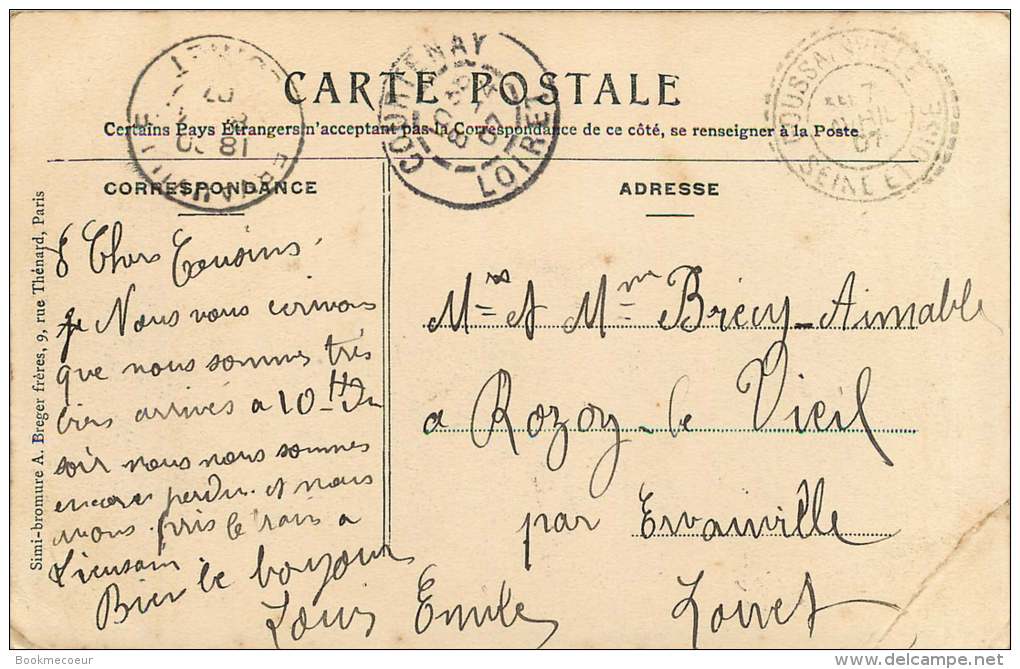 CARTE POSTALE
Certains Pays Étrangers n'acceptant pas la Correspondance de ce côté, se renseigner à la Poste
CORRESPONDANCE
Chers Cousins
je Nous vous ecrivons
que nous sommes très
bien arrivés a 10 H du
soir nous nous sommes
encore perdu et nous
avons pris le train a
Lieusain
Bien le bonjour
Louis Emile
ADRESSE
Mrs et Mme Brécy-Aimable
a Rozoy-le Vieil
par Ervauville
Loiret
Simi-bromure A. Breger frères, 9, rue Thénard, Paris
COURTENAY
LOIRET
07
GOUSSAINVILLE
7
AVRIL
07
SEINE ET OISE
ERVAUVILLE
LOIRET
18 30
07
Bookmecoeur
www.delcampe.net